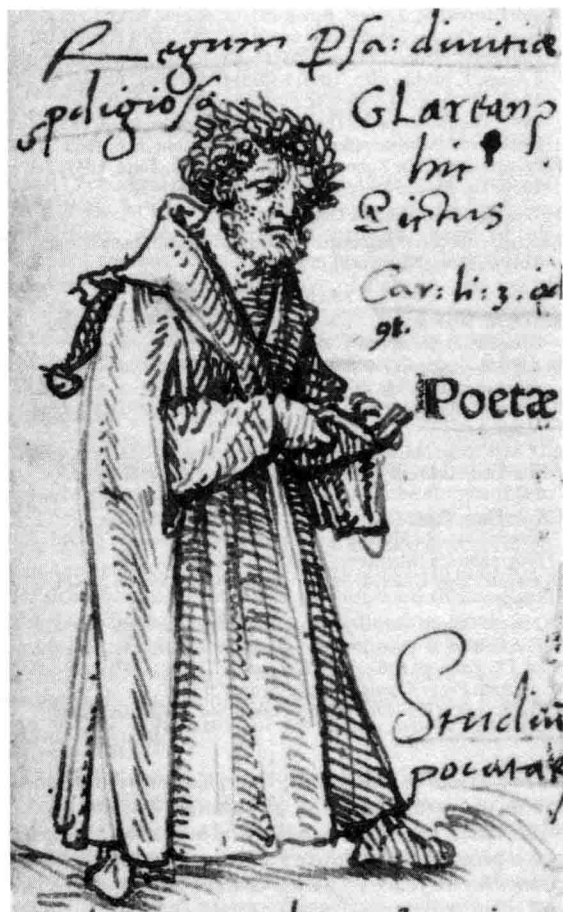 Regum Psa: divitiæ
prdigiosæ
GLarean9
hic
Pictus
Car: li: 3. od
9t.
Poetæ
Studiū